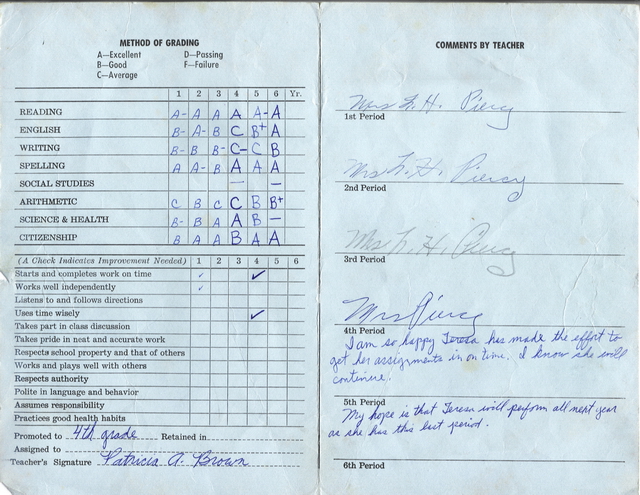 METHOD OF GRADING
A—Excellent D—Passing
B—Good F—Failure
C—Average
1 2 3 4 5 6 Yr.
READING A- A A A A- A
ENGLISH B- A- B C B+ A
WRITING B- B B- C- C B
SPELLING A A- B A A A
SOCIAL STUDIES — —
ARITHMETIC C B C C B B+
SCIENCE & HEALTH B- B A A B —
CITIZENSHIP B A A B A A
(A Check Indicates Improvement Needed) 1 2 3 4 5 6
Starts and completes work on time ✓ ✓
Works well independently ✓
Listens to and follows directions
Uses time wisely ✓
Takes part in class discussion
Takes pride in neat and accurate work
Respects school property and that of others
Works and plays well with others
Respects authority
Polite in language and behavior
Assumes responsibility
Practices good health habits
Promoted to 4th grade Retained in
Assigned to
Teacher's Signature Patricia A. Brown
COMMENTS BY TEACHER
Mrs L. H. Piercy
1st Period
Mrs L. H. Piercy
2nd Period
Mrs L. H. Piercy
3rd Period
Mrs Piercy
4th Period
I am so happy Teresa has made the effort to
get her assignments in on time. I know she will
continue.
5th Period
My hope is that Teresa will perform all next year
as she has this last period.
6th Period